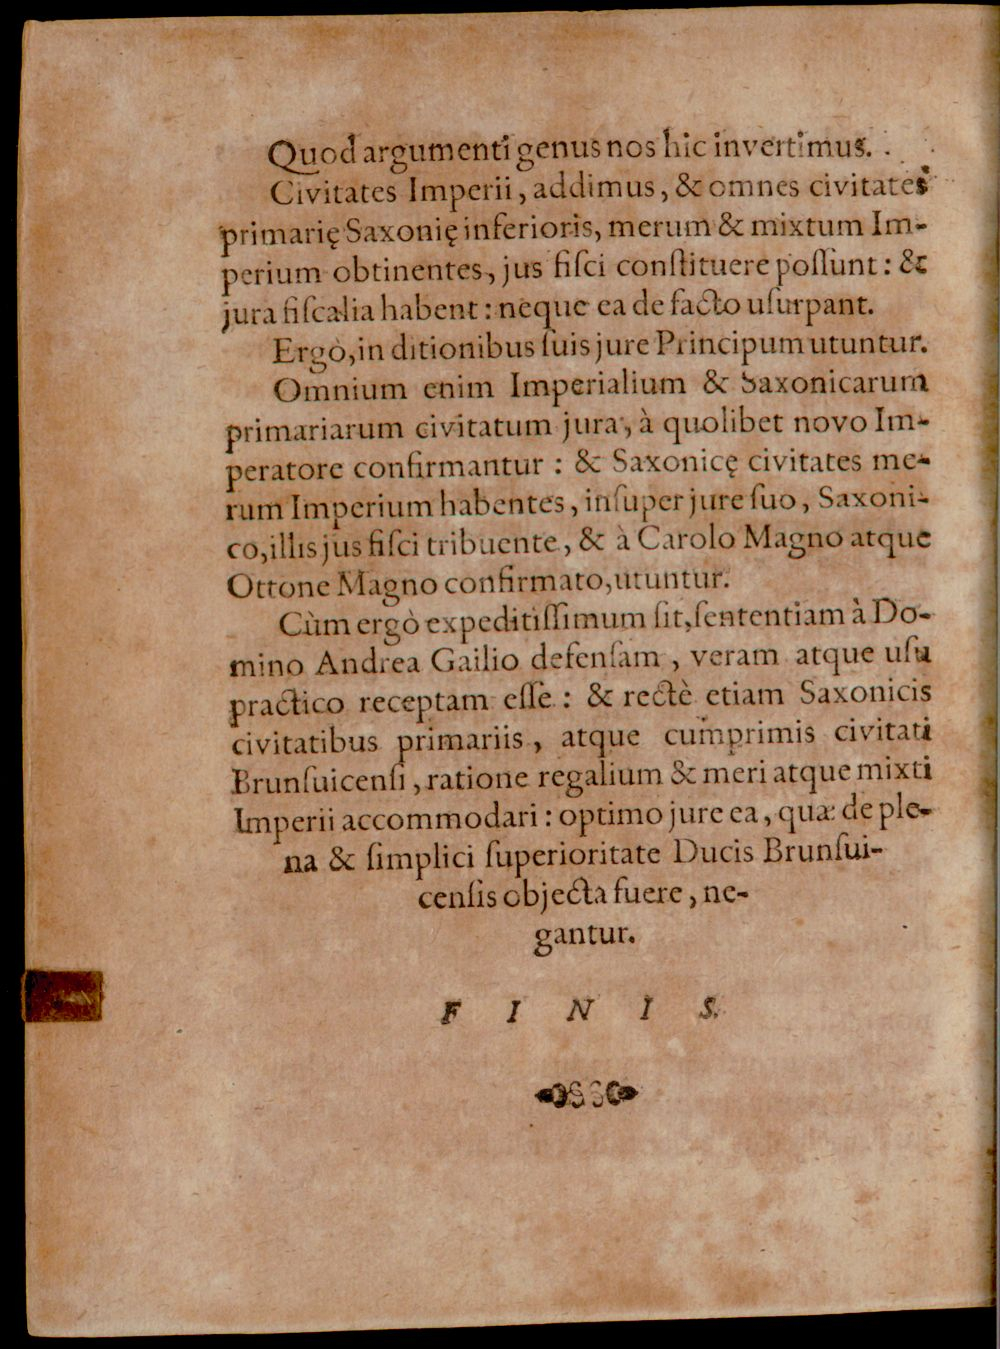 Quod argumenti genus nos hic invertimus.
Civitates Imperii, addimus, & omnes civitates
primarię Saxonię inferioris, merum & mixtum Im-
perium obtinentes, jus fiſci conſtituere poſſunt: &
jura fiſcalia habent: neque ea de facto uſurpant.
Ergò, in ditionibus ſuis jure Principum utuntur.
Omnium enim Imperialium & Saxonicarum
primariarum civitatum jura, à quolibet novo Im-
peratore confirmantur: & Saxonicę civitates me-
rum Imperium habentes, inſuper jure ſuo, Saxoni-
co, illis jus fiſci tribuente, & à Carolo Magno atque
Ottone Magno confirmato, utuntur.
Cùm ergò expeditiſſimum ſit, ſententiam à Do-
mino Andrea Gailio defenſam, veram atque uſu
practico receptam eſſe: & rectè etiam Saxonicis
civitatibus primariis, atque cumprimis civitati
Brunſuicenſi, ratione regalium & meri atque mixti
Imperii accommodari: optimo jure ea, quæ de ple-
na & ſimplici ſuperioritate Ducis Brunſui-
cenſis objecta fuere, ne-
gantur.
F I N I S.